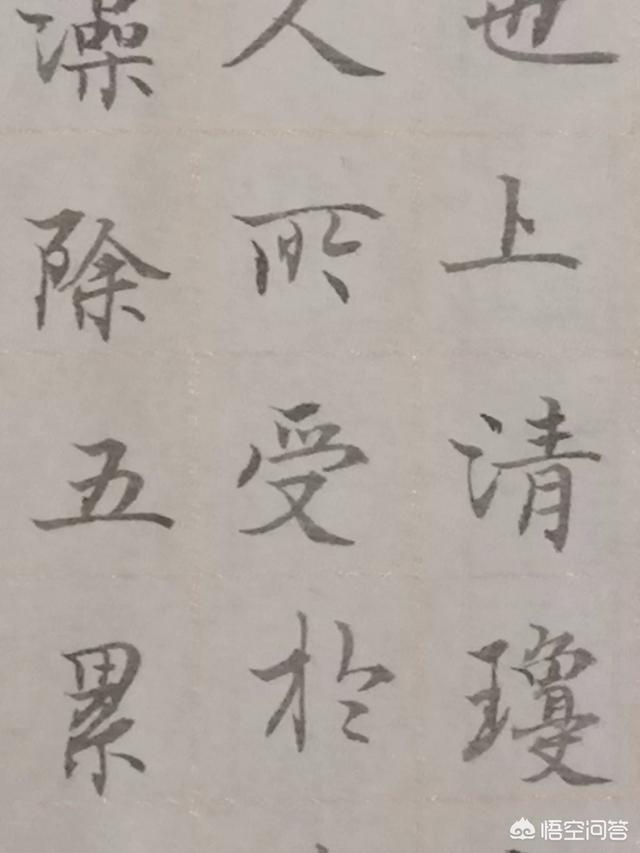 也上清瓊
人所受於
澡除五累
悟空问答